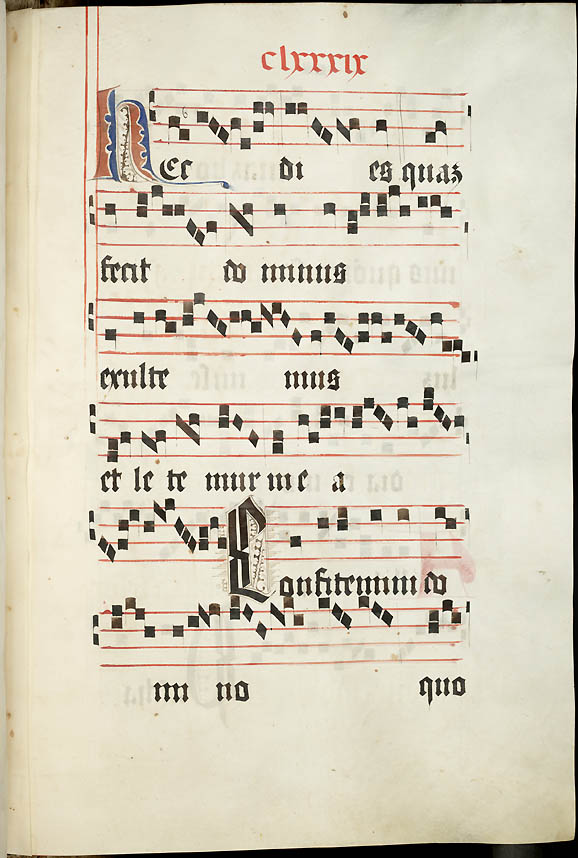 clxxxix
Hec di es quaz
fecit do minus
exulte mus
et le te mur in e a
Confitemini do
mi no quo